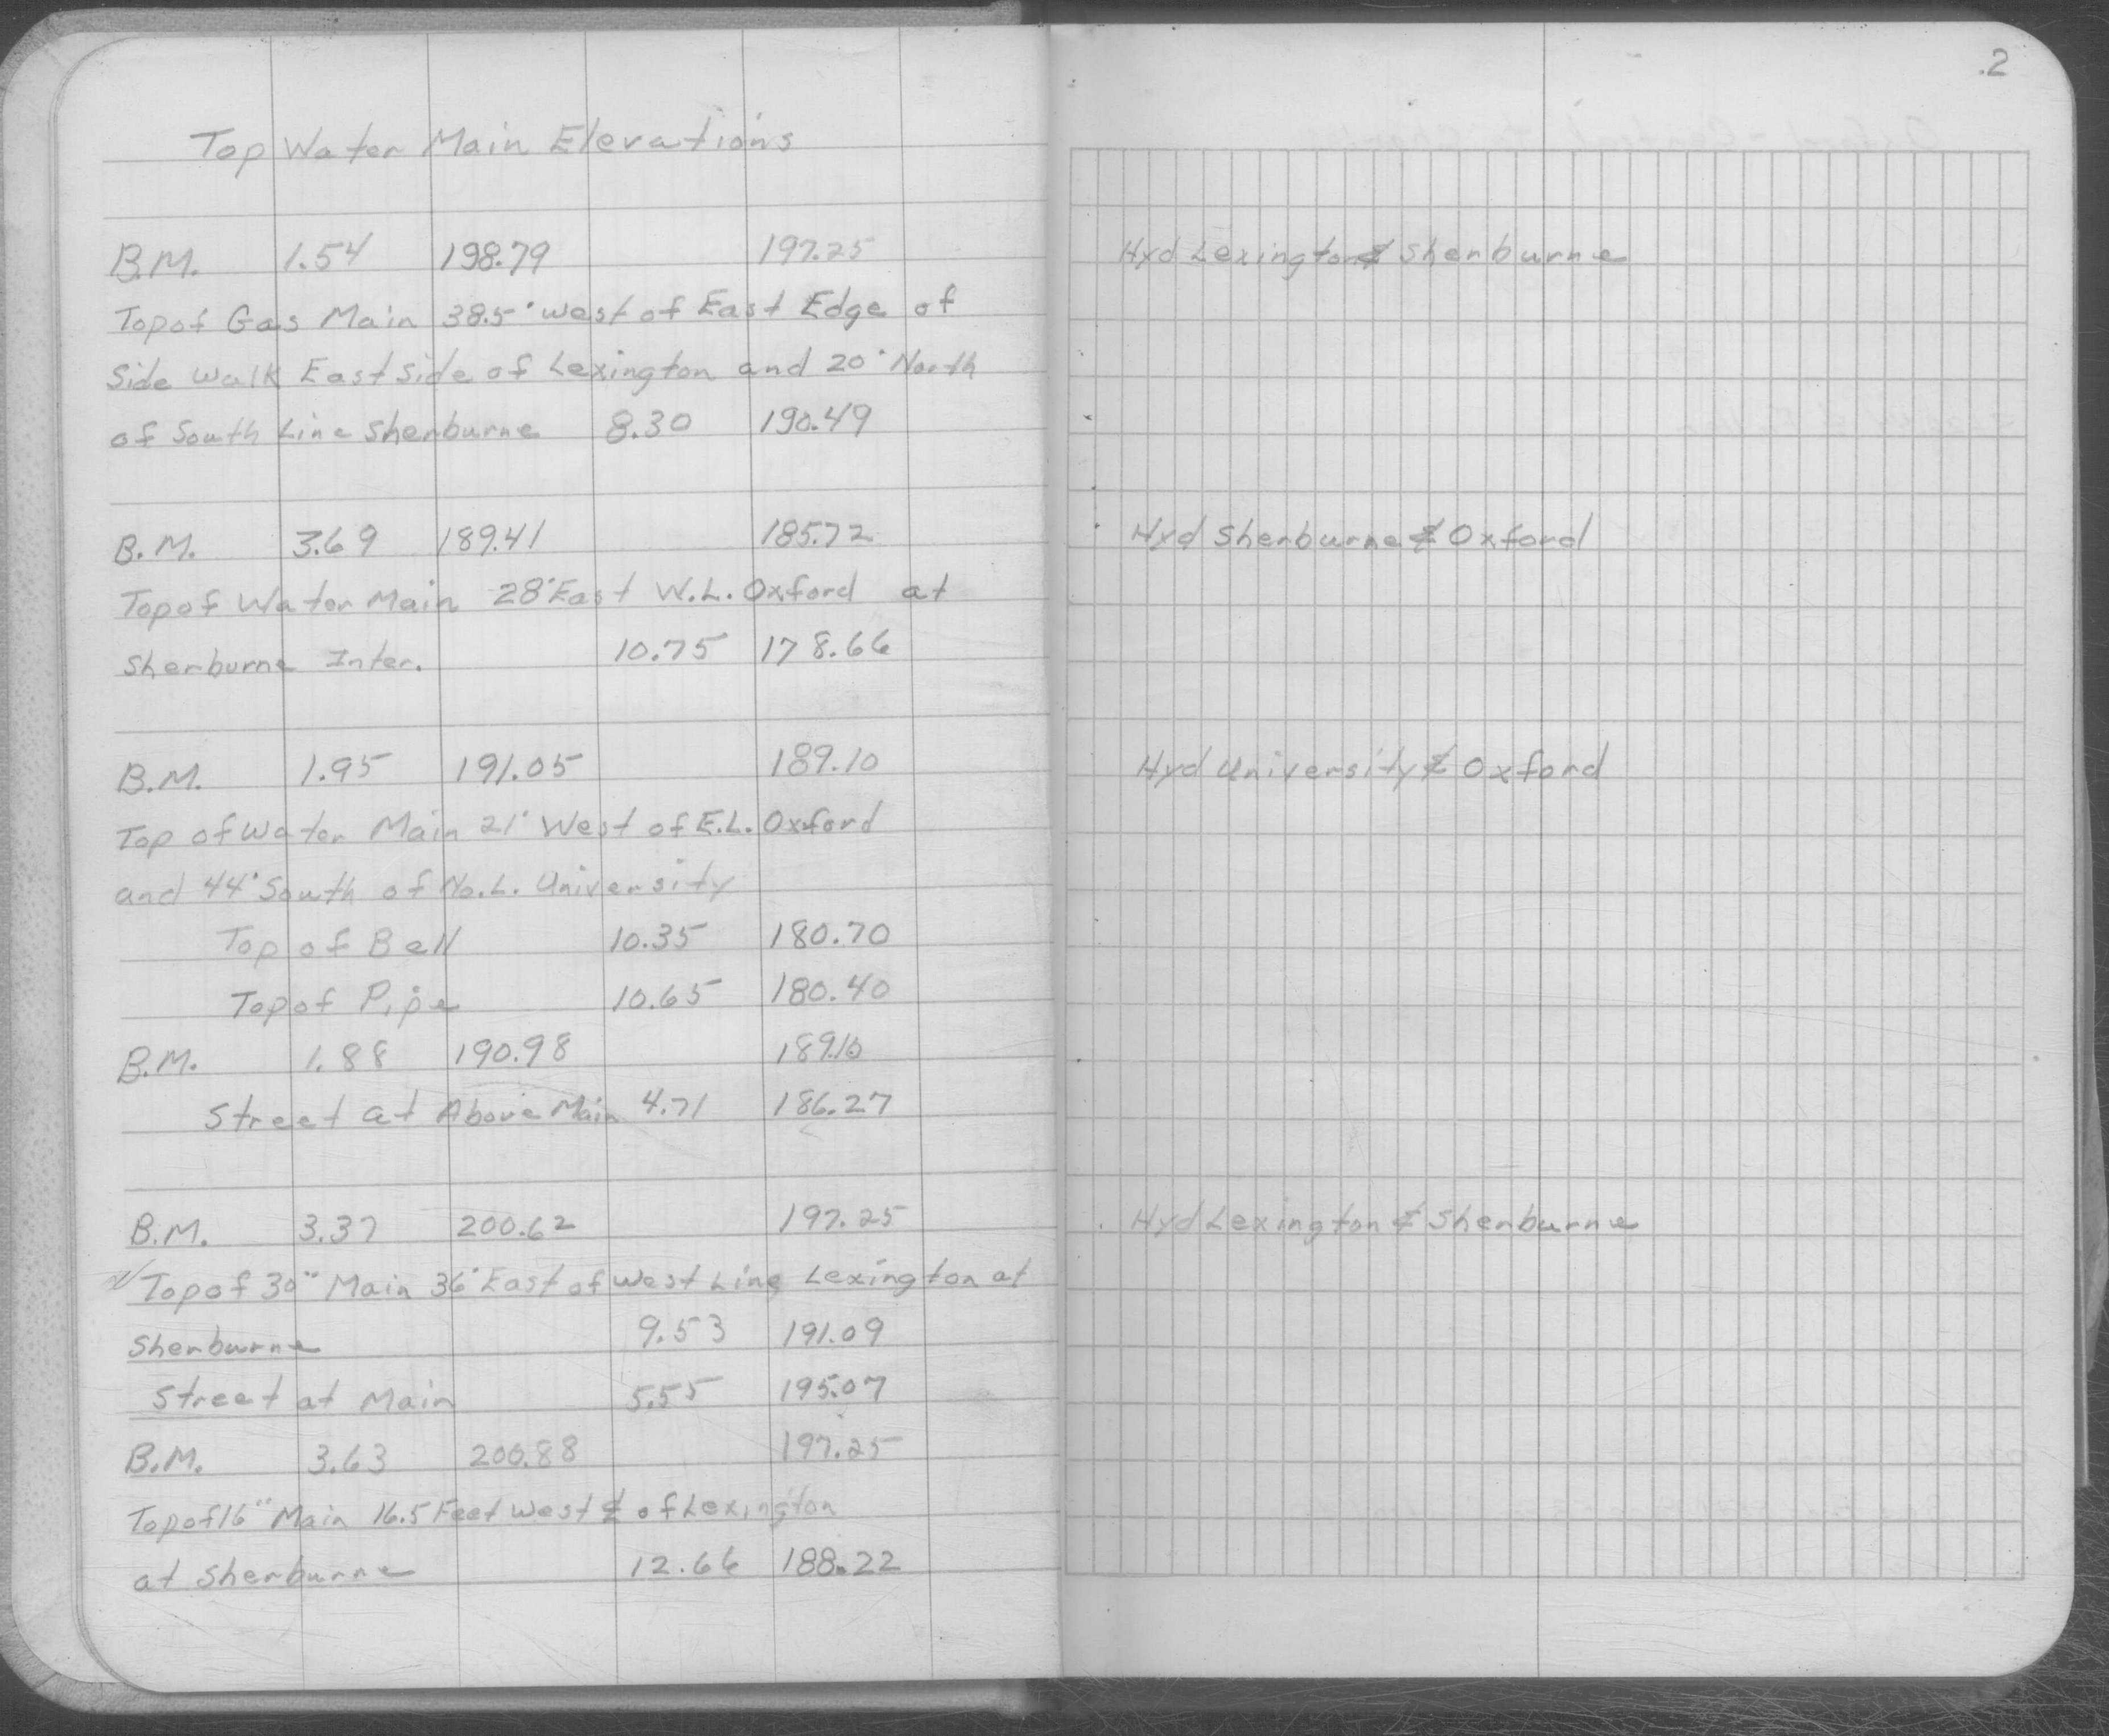 2
Top Water Main Elevations
B.M. 1.54 198.79 197.25 Hyd Lexington & Sherburne
Top of Gas Main 38.5' west of East Edge of
Side Walk East Side of Lexington and 20' North
of South Line Sherburne 8.30 190.49
B.M. 3.69 189.41 185.72 Hyd Sherburne & Oxford
Top of Water Main 28' East W.L. Oxford at
Sherburne Inter. 10.75 178.66
B.M. 1.95 191.05 189.10 Hyd University & Oxford
Top of Water Main 21' West of E.L. Oxford
and 44' South of No.L. University
Top of Bell 10.35 180.70
Top of Pipe 10.65 180.40
B.M. 1.88 190.98 189.10
Street at Above Main 4.71 186.27
B.M. 3.37 200.62 197.25 Hyd Lexington & Sherburne
Top of 30" Main 36' East of West Line Lexington at
Sherburne 9.53 191.09
Street at Main 5.55 195.07
B.M. 3.63 200.88 197.25
Top of 16" Main 16.5 Feet West ℄ of Lexington
at Sherburne 12.66 188.22